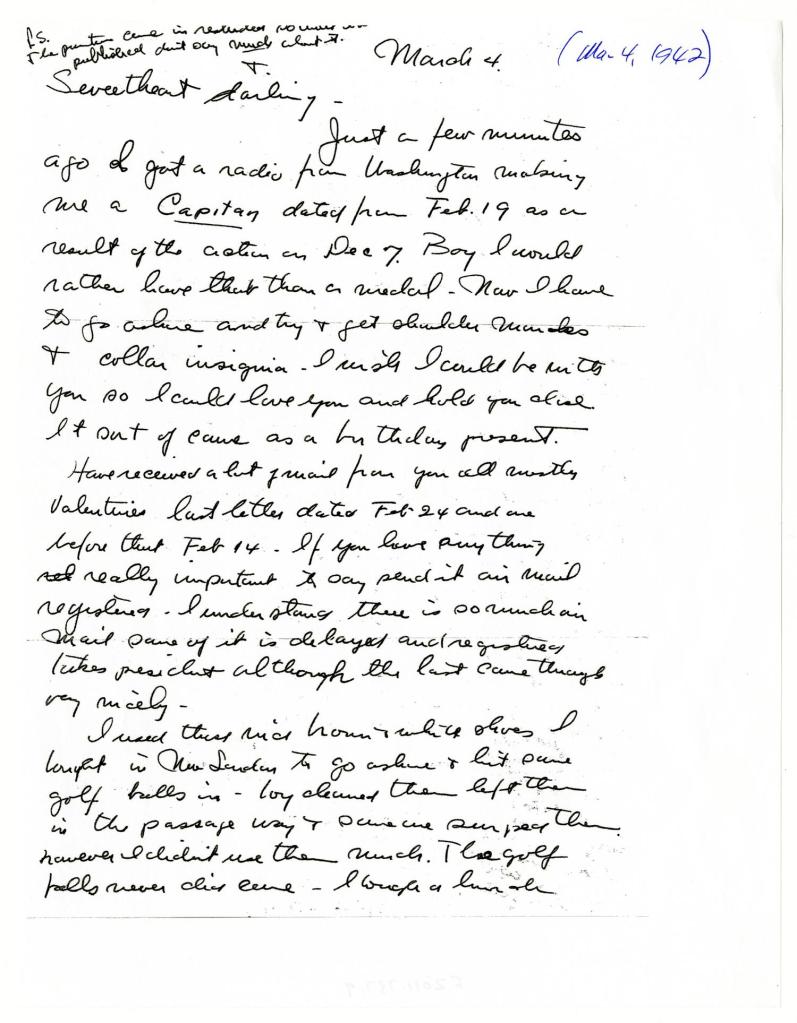 P.S.
The promotion came in restricted so until
published don't say much about it.
March 4.
(Mar 4, 1942)
Sweetheart darling -
Just a few minutes
ago I got a radio from Washington making
me a Captain dated from Feb. 19 as a
result of the action on Dec 7. Boy I would
rather have that than a medal - Now I have
to go ashore and try & get shoulder marks
& collar insignia - I wish I could be with
you so I could love you and hold you close.
It sort of came as a birthday present.
Have received a lot of mail from you all mostly
Valentines last letter dated Feb 24 and one
before that Feb 14 - If you have anything
really important to say send it air mail
registered - I understand there is so much air
mail some of it is delayed and registered
takes president although the last came through
very nicely -
I used those nice brown & white shoes I
bought in New London to go ashore & hit some
golf balls in - boy cleaned them left them
in the passage way & someone swiped them.
however I didn't use them much. The golf
balls never did come - I bought a